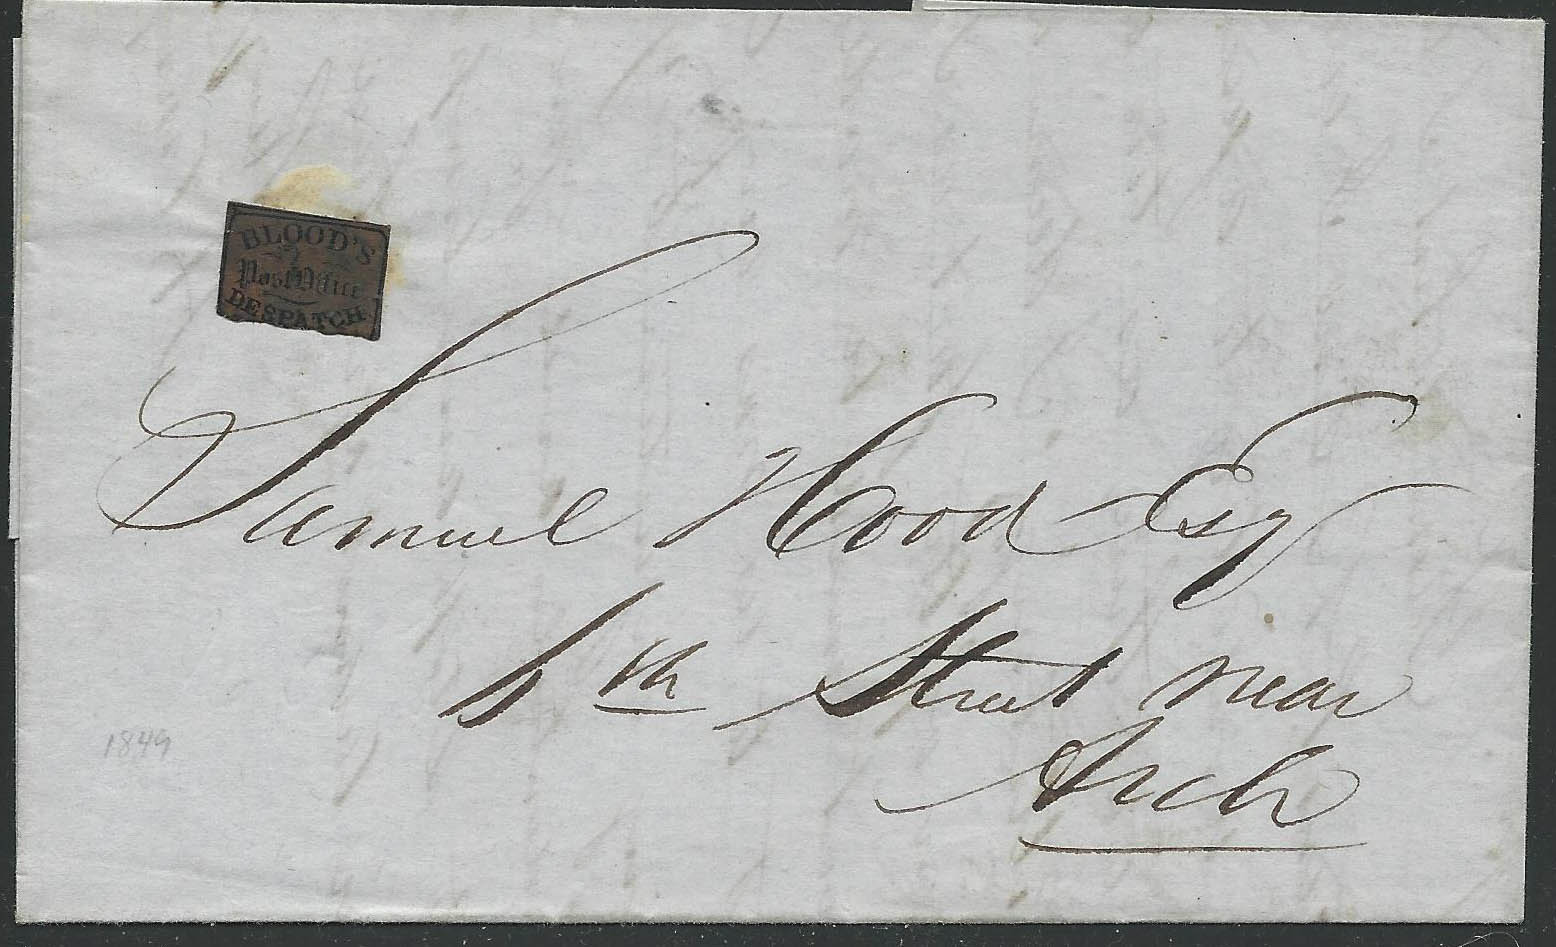 BLOOD'S
Post Office
DESPATCH
Samuel Hood Esq
6th Street near
Arch
1849